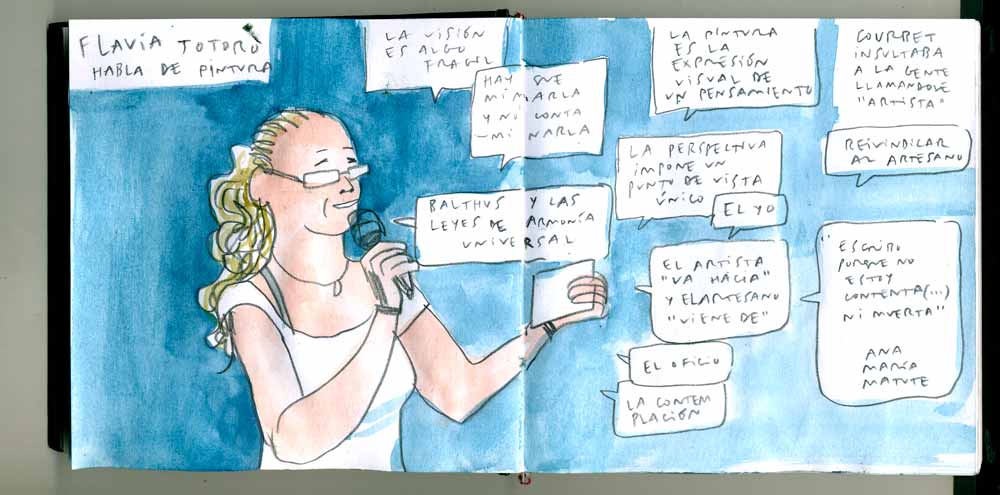 FLAVIA TOTORO
HABLA DE PINTURA
LA VISIÓN
ES ALGO
FRAGIL
HAY QUE
MIMARLA
Y NO CONTA
-MINARLA
BALTHUS Y LAS
LEYES DE ARMONÍA
UNIVERSAL
LA PINTURA
ES LA
EXPRESIÓN
VISUAL DE
UN PENSAMIENTO
LA PERSPECTIVA
IMPONE UN
PUNTO DE VISTA
ÚNICO
EL YO
EL ARTISTA
"VA HACIA"
Y EL ARTESANO
"VIENE DE"
EL OFICIO
LA CONTEM
PLACIÓN
COURBET
INSULTABA
A LA GENTE
LLAMANDOLE
"ARTISTA"
REIVINDICAR
AL ARTESANO
"ESCRIBO
PORQUE NO
ESTOY
CONTENTA(...)
NI MUERTA"
ANA
MARÍA
MATUTE